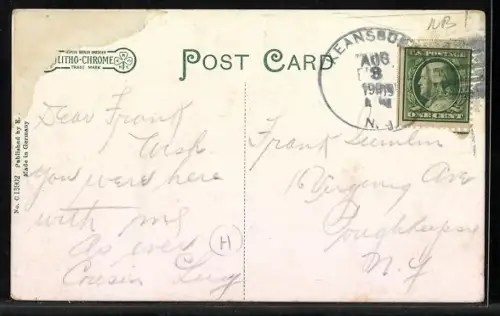 LITHO-CHROME
TRADE MARK
POST CARD
NB
KEANSBU
AUG
3
N.J.
U.S. POSTAGE
ONE CENT
No. C12902 Published by
Made in Germany
Dear Frank
Wish
you were here
with me
As ever
Cousin
H
Frank
16 Virginia Ave
Poughkeepsie
N.Y